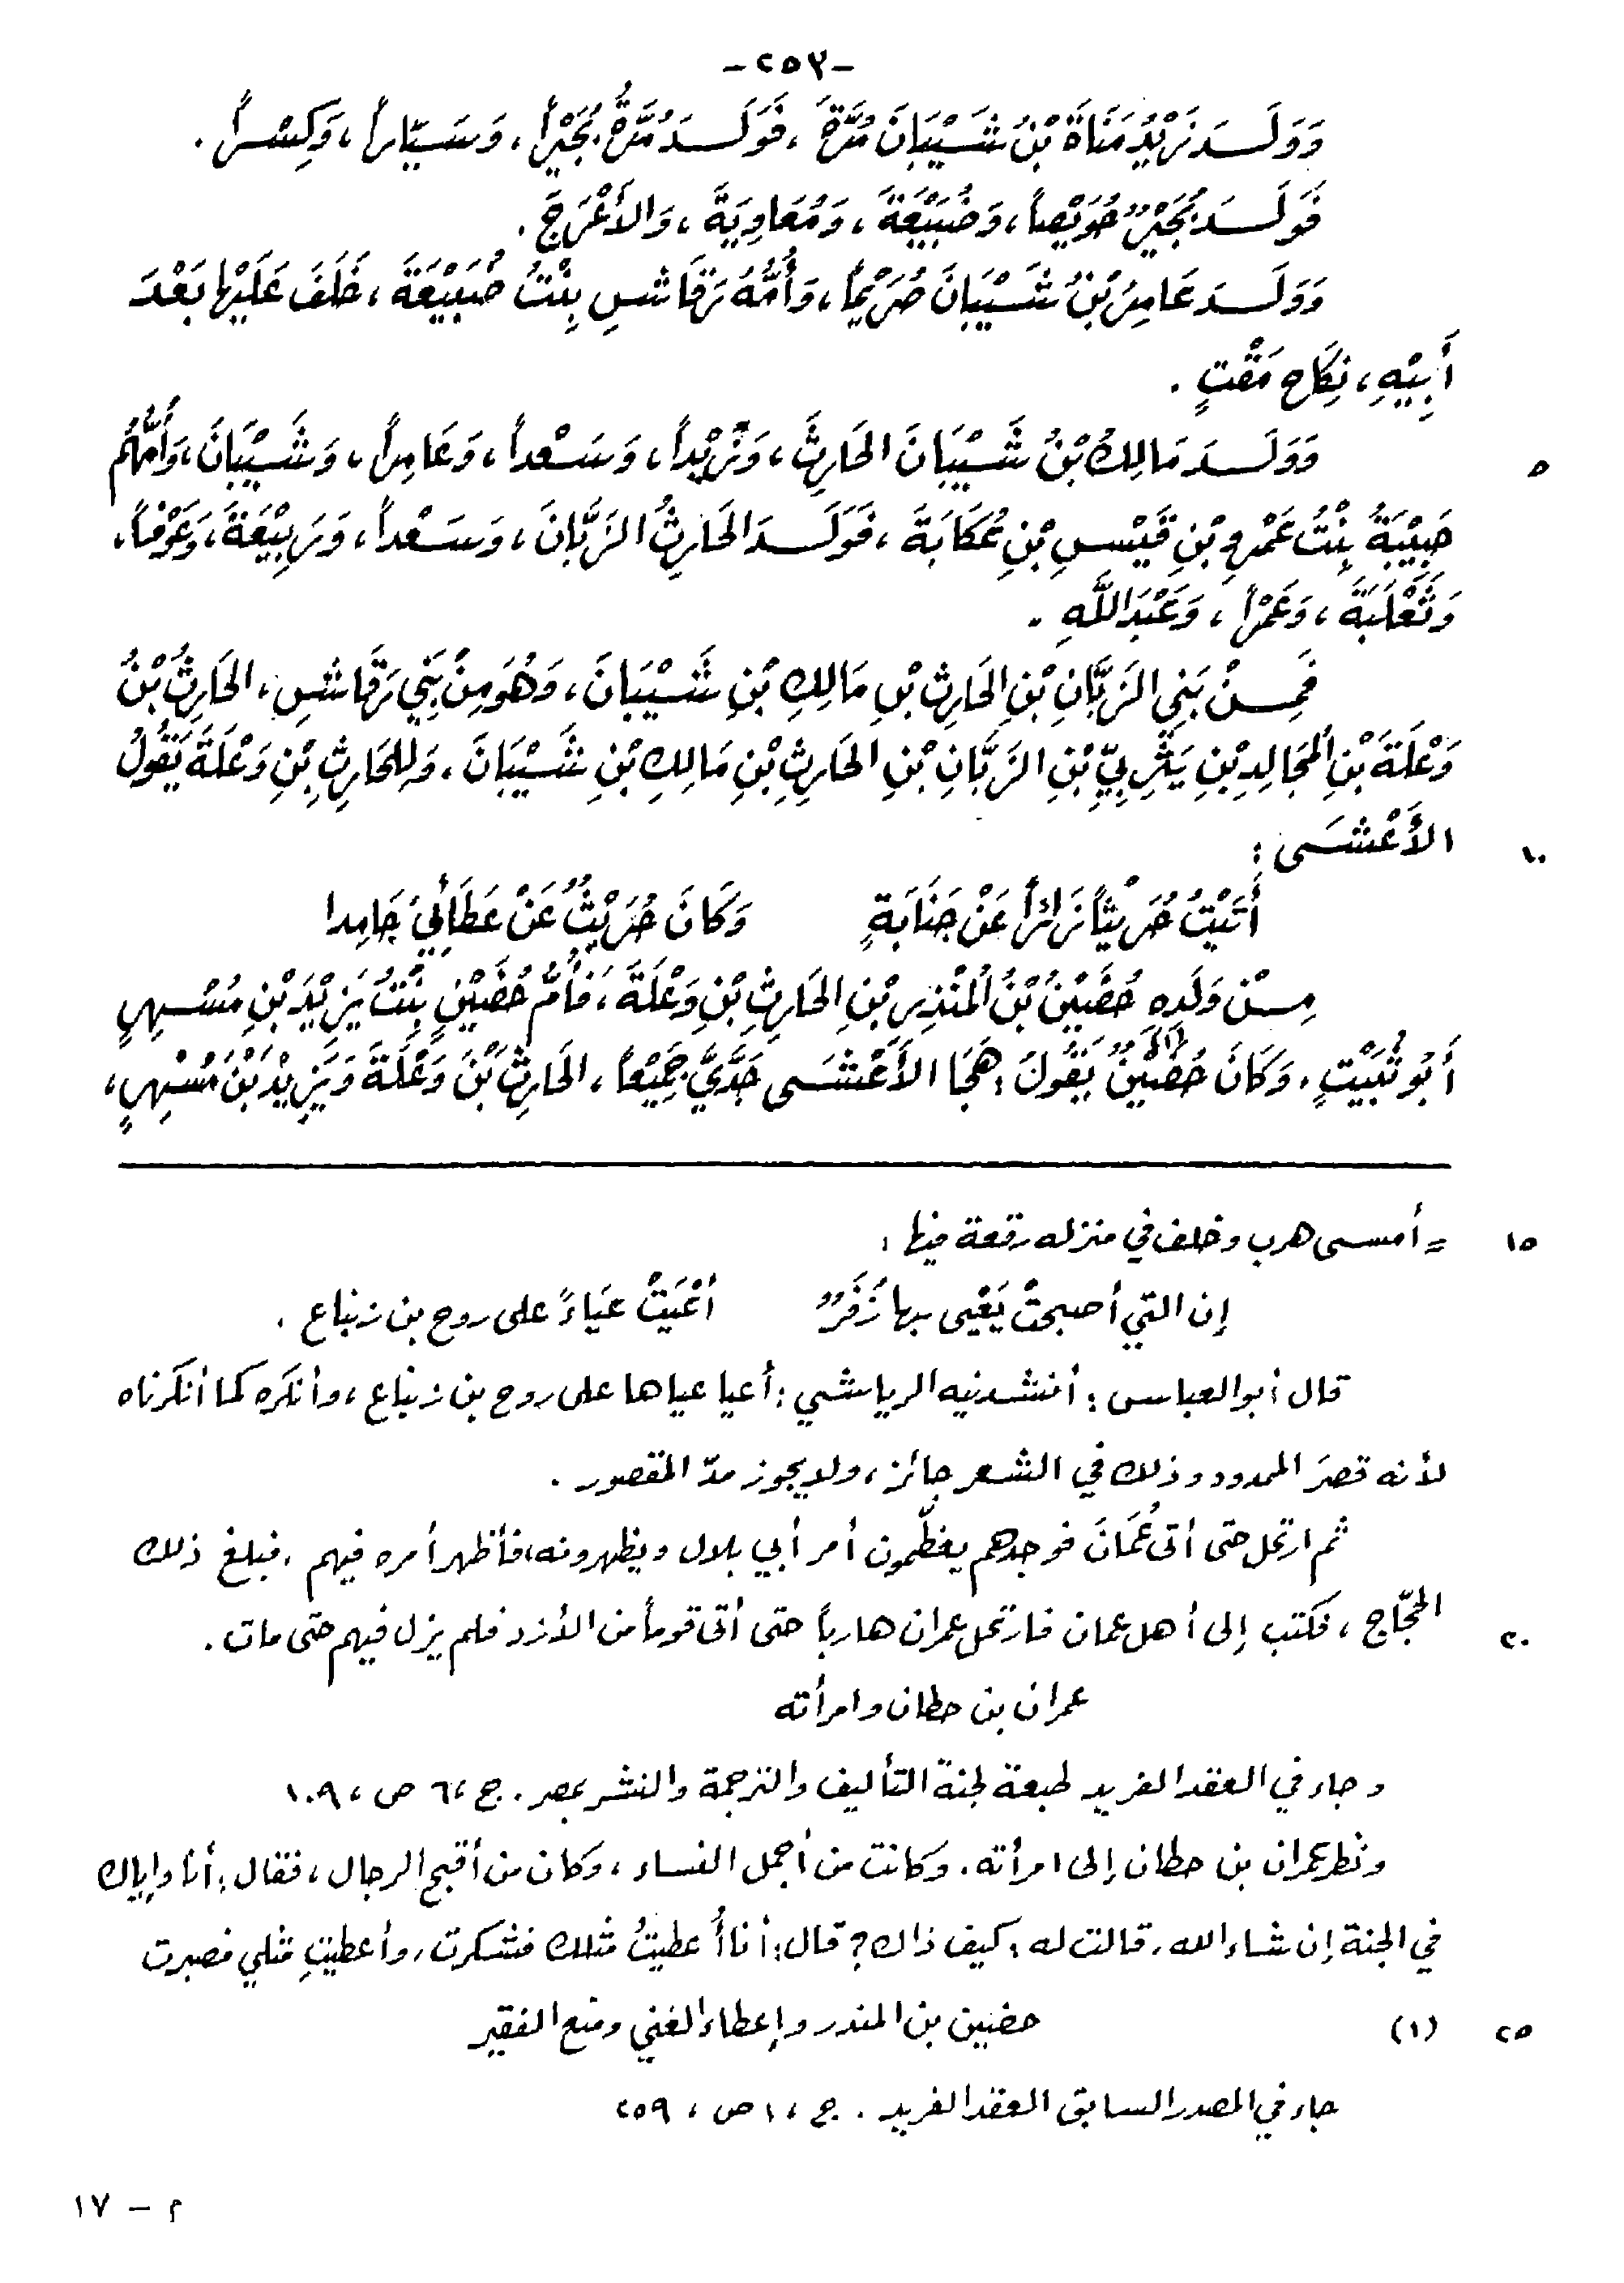 -٢٥٣-
وَوَلَدَ زَيْدُ مَنَاةَ بْنُ شَيْبَانَ مُرَّةَ ، فَوَلَدَ مُرَّةُ بُجَيْراً ، وَسَيَّاراً ، وَكِسْراً .
فَوَلَدَ بُجَيْرٌ حُوَيْصاً ، وَضُبَيْعَةَ ، وَمُعَاوِيَةَ ، وَالأَعْرَجَ .
وَوَلَدَ عَامِرُ بْنُ شَيْبَانَ صُرَيْماً ، وَأُمُّهُ رَقَاشِ بِنْتُ ضُبَيْعَةَ ، خَلَفَ عَلَيْهَا بَعْدَ
أَبِيْهِ ، نِكَاحَ مَقْتٍ .
٥ وَوَلَدَ مَالِكُ بْنُ شَيْبَانَ الحَارِثَ ، وَزَيْداً ، وَسَعْداً ، وَعَامِراً ، وَشَيْبَانَ ، وَأُمُّهُم
حَبِيْبَةُ بِنْتُ عَمْرِو بْنِ قَيْسِ بْنِ عُكَابَةَ ، فَوَلَدَ الحَارِثُ الزَّبَّانَ ، وَسَعْداً ، وَرَبِيْعَةَ ، وَعَوْفاً ،
وَثَعْلَبَةَ ، وَعَمْراً ، وَعَبْدَ اللَّهِ .
فَمِنْ بَنِي الزَّبَّانِ بْنِ الحَارِثِ بْنِ مَالِكِ بْنِ شَيْبَانَ ، وَهُوَ مِنْ بَنِي رَقَاشِ ، الحَارِثُ بْنُ
وَعْلَةَ بْنِ المُجَالِدِ بْنِ يَثْرِبِيِّ بْنِ الزَّبَّانِ بْنِ الحَارِثِ بْنِ مَالِكِ بْنِ شَيْبَانَ ، وَلِلحَارِثِ بْنِ وَعْلَةَ يَقُولُ
١٠ الأَعْشَى :
أَتَيْتُ حُرَيْثاً زَائِراً عَنْ جَنَابَةٍ وَكَانَ حُرَيْثٌ عَنْ عَطَائِيَ جَامِدا
مِنْ وَلَدِهِ حُضَيْنُ بْنُ المُنْذِرِ بْنِ الحَارِثِ بْنِ وَعْلَةَ ، فَأُمُّ حُضَيْنٍ بِنْتُ يَزِيْدَ بْنِ مُسْهِرٍ
أَبُو ثُبَيْتٍ ، وَكَانَ حُضَيْنٌ (١) يَقُولُ : هَجَا الأَعْشَى جَدَّيَّ جَمِيْعاً ، الحَارِثَ بْنَ وَعْلَةَ وَيَزِيْدَ بْنَ مُسْهِرٍ ،
١٥ = أمسى هرب وخلف في منزله رقعة فيها :
إن التي أصبحتْ يَعْيى بها زُفَرٌ أعْيَتْ عَيَاءً على روح بن زنباع .
قال أبو العباس : أنشدنيه الرياشي : أعيا عياها على روح بن زنباع ، وأنكره كما أنكرناه
لأنه قصرَ الممدود وذلك في الشعر جائز ، ولا يجوز مدّ المقصور .
ثم ارتحل حتى أتى عُمَانَ فوجدهم يعظّمون أمر أبي بلال ويظهرونه ، فأظهر أمره فيهم . فبلغ ذلك
٢٠ الحجّاج ، فكتب إلى أهل عمان فارتحل عمران هارباً حتى أتى قوماً من الأزد فلم يزل فيهم حتى مات .
عمران بن حطان وامرأته
وجاء في العقد الفريد طبعة لجنة التأليف والترجمة والنشر بمصر . ج ، ٦ ص ، ١٠٩
ونظر عمران بن حطان إلى امرأته . وكانت من أجمل النساء ، وكان من أقبح الرجال ، فقال : أنا وإياك
في الجنة إن شاء الله . قالت له : كيف ذاك ؟ قال : أنا أُعطيتُ مثلك فشكرت ، وأعطيتِ مثلي فصبرت
٢٥ (١) حضين بن المنذر وإعطاء الغني ومنع الفقير
جاء في المصدر السابق العقد الفريد . ج ، ١ ص ، ٢٥٩
م - ١٧